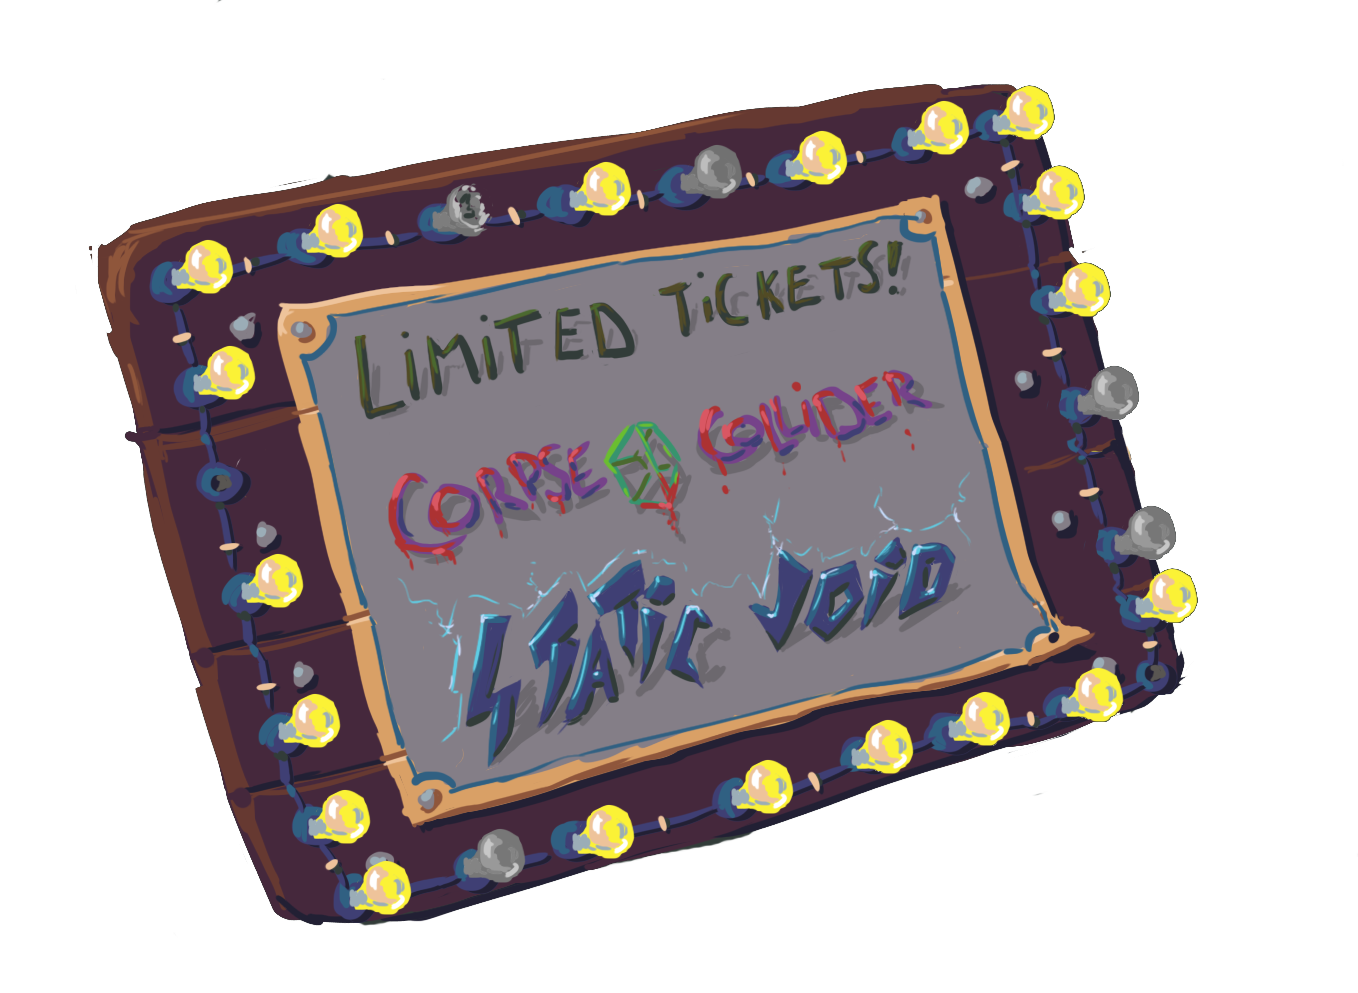 LiMiTED TiCKETS!
CORPSE COLLiDER
STATiC VOiD